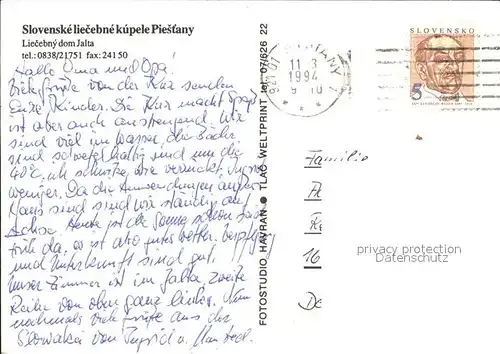 Slovenské liečebné kúpele Piešťany
Liečebný dom Jalta
tel.: 0838/21751 fax: 241 50
Hallo Oma und Opa!
Viele Grüße von der Kur senden
Eure Kinder. Die Kur macht Spaß
ist aber auch anstrengend. Wir
sind viel im Wasser, die Bäder
sind schwefelhaltig und um die
40°C, ich schwitze wie verrückt, Ingrid
weniger. Da die Anwendungen außer
Haus sind sind wir ständig auf
Achse. Heute ist die Sonne schon
früh da, es ist also gutes Wetter. Verpflegung
und Unterkunft sind gut.
Unser Zimmer ist im Jalta, zweite
Reihe von oben ganz links. Nun
nochmals viele Grüße aus der
Slowakei von Ingrid u. Manfred.
FOTOSTUDIO HAVRAN ● TLAČ WELTPRINT tel. 07/626 22
PIEŠŤANY 1
921 01
11 3
1994
9 10
SLOVENSKO
5
Familie
16
privacy protection
Datenschutz